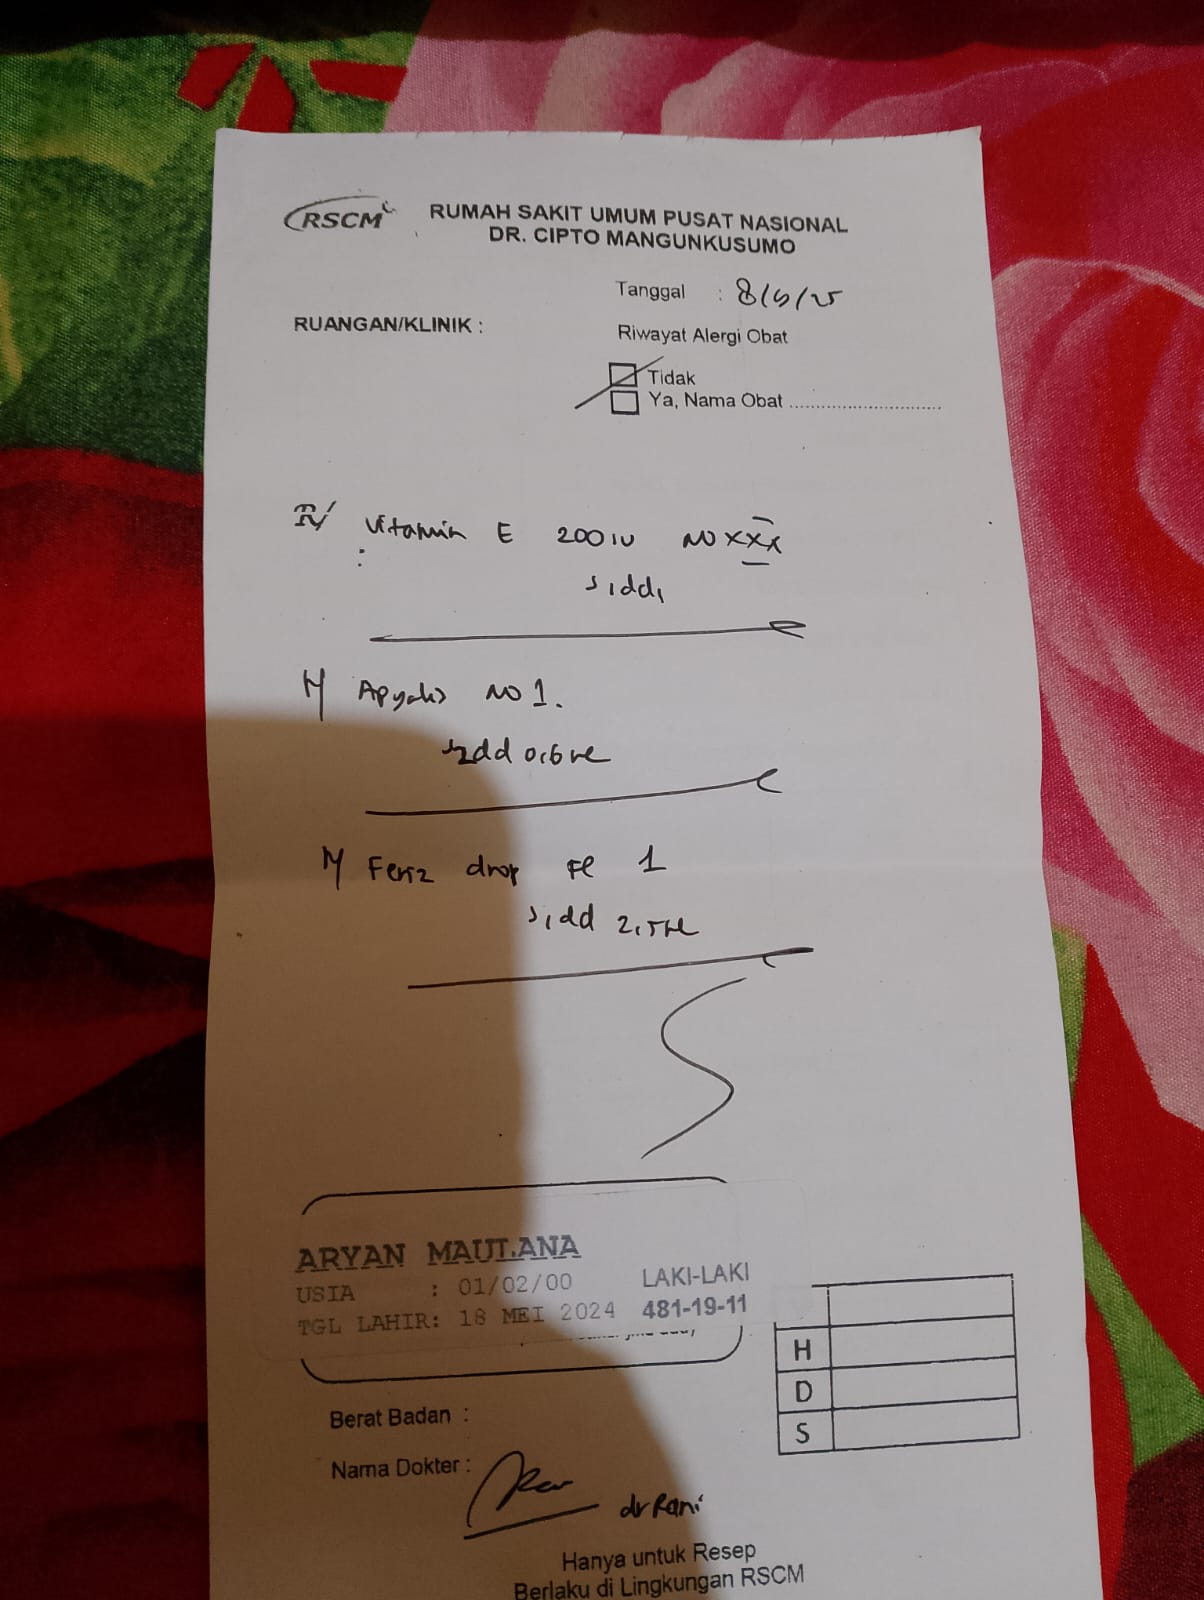 RSCM RUMAH SAKIT UMUM PUSAT NASIONAL
DR. CIPTO MANGUNKUSUMO
Tanggal :
RUANGAN/KLINIK :
Riwayat Alergi Obat
Tidak
Ya, Nama Obat ..............................
R/ Vitamin E 200 IU NO XXX
S1dd1
No 1.
drop Fl 1
S1dd
ARYAN MAULANA
USIA : 01/02/00 LAKI-LAKI
TGL LAHIR: 18 MEI 2024 481-19-11
H
D
S
Berat Badan :
Nama Dokter :
dr Rani
Hanya untuk Resep
Berlaku di Lingkungan RSCM